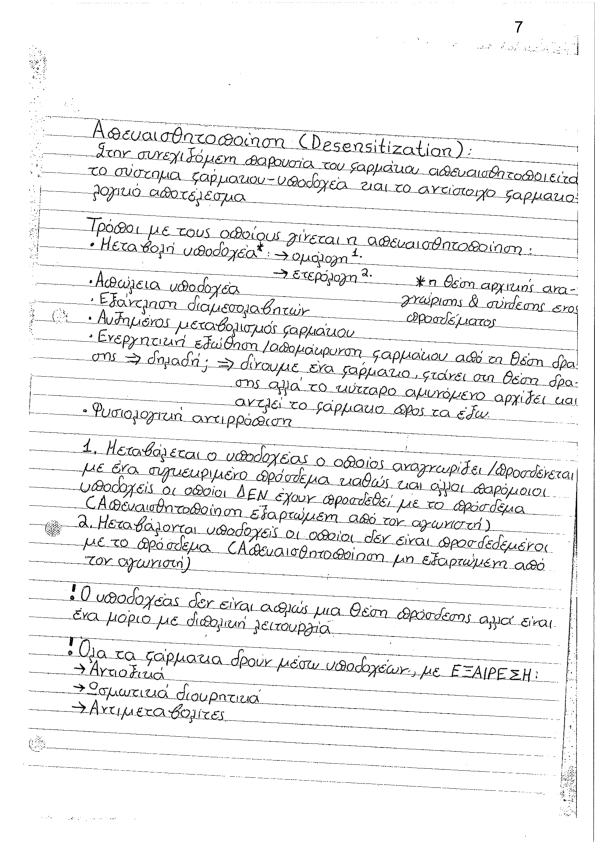 7
Απευαισθητοποίηση (Desensitization):
Στην συνεχιζόμενη παρουσία του φαρμάκου απευαισθητοποιείται
το σύστημα φαρμάκου-υποδοχέα και το αντίστοιχο φαρμακο-
λογικό αποτέλεσμα
Τρόποι με τους οποίους γίνεται η απευαισθητοποίηση:
• Μεταβολή υποδοχέα*: → ομόλογη 1.
→ ετερόλογη 2.
* η θέση αρχικής ανα-
γνώρισης & σύνδεσης ενός
προσδέματος
• Απώλεια υποδοχέα
• Εξάντληση διαμεσολαβητών
• Αυξημένος μεταβολισμός φαρμάκου
• Ενεργητική εξώθηση/απομάκρυνση φαρμάκου από τη θέση δρά-
σης ⇒ δηλαδή; ⇒ δίνουμε ένα φάρμακο, φτάνει στη θέση δρά-
σης αλλά το κύτταρο αμυνόμενο αρχίζει και
αντλεί το φάρμακο προς τα έξω
• Φυσιολογική αντιρρόπιση
1. Μεταβάλεται ο υποδοχέας ο οποίος αναγνωρίζει/προσδένεται
με ένα συγκεκριμένο πρόσδεμα καθώς και άλλοι παρόμοιοι
υποδοχείς οι οποίοι ΔΕΝ έχουν προσδεθεί με το πρόσδεμα
(Απευαισθητοποίηση εξαρτώμενη από τον αγωνιστή)
2. Μεταβάλονται υποδοχείς οι οποίοι δεν είναι προσδεδεμένοι
με το πρόσδεμα (Απευαισθητοποίηση μη εξαρτώμενη από
τον αγωνιστή)
! Ο υποδοχέας δεν είναι απλώς μια θέση πρόσδεσης αλλά είναι
ένα μόριο με διπολική λειτουργία
! Όλα τα φάρμακα δρουν μέσω υποδοχέων, με ΕΞΑΙΡΕΣΗ:
→ Αντιοξικά
→ Ωσμωτικά διουρητικά
→ Αντιμεταβολίτες